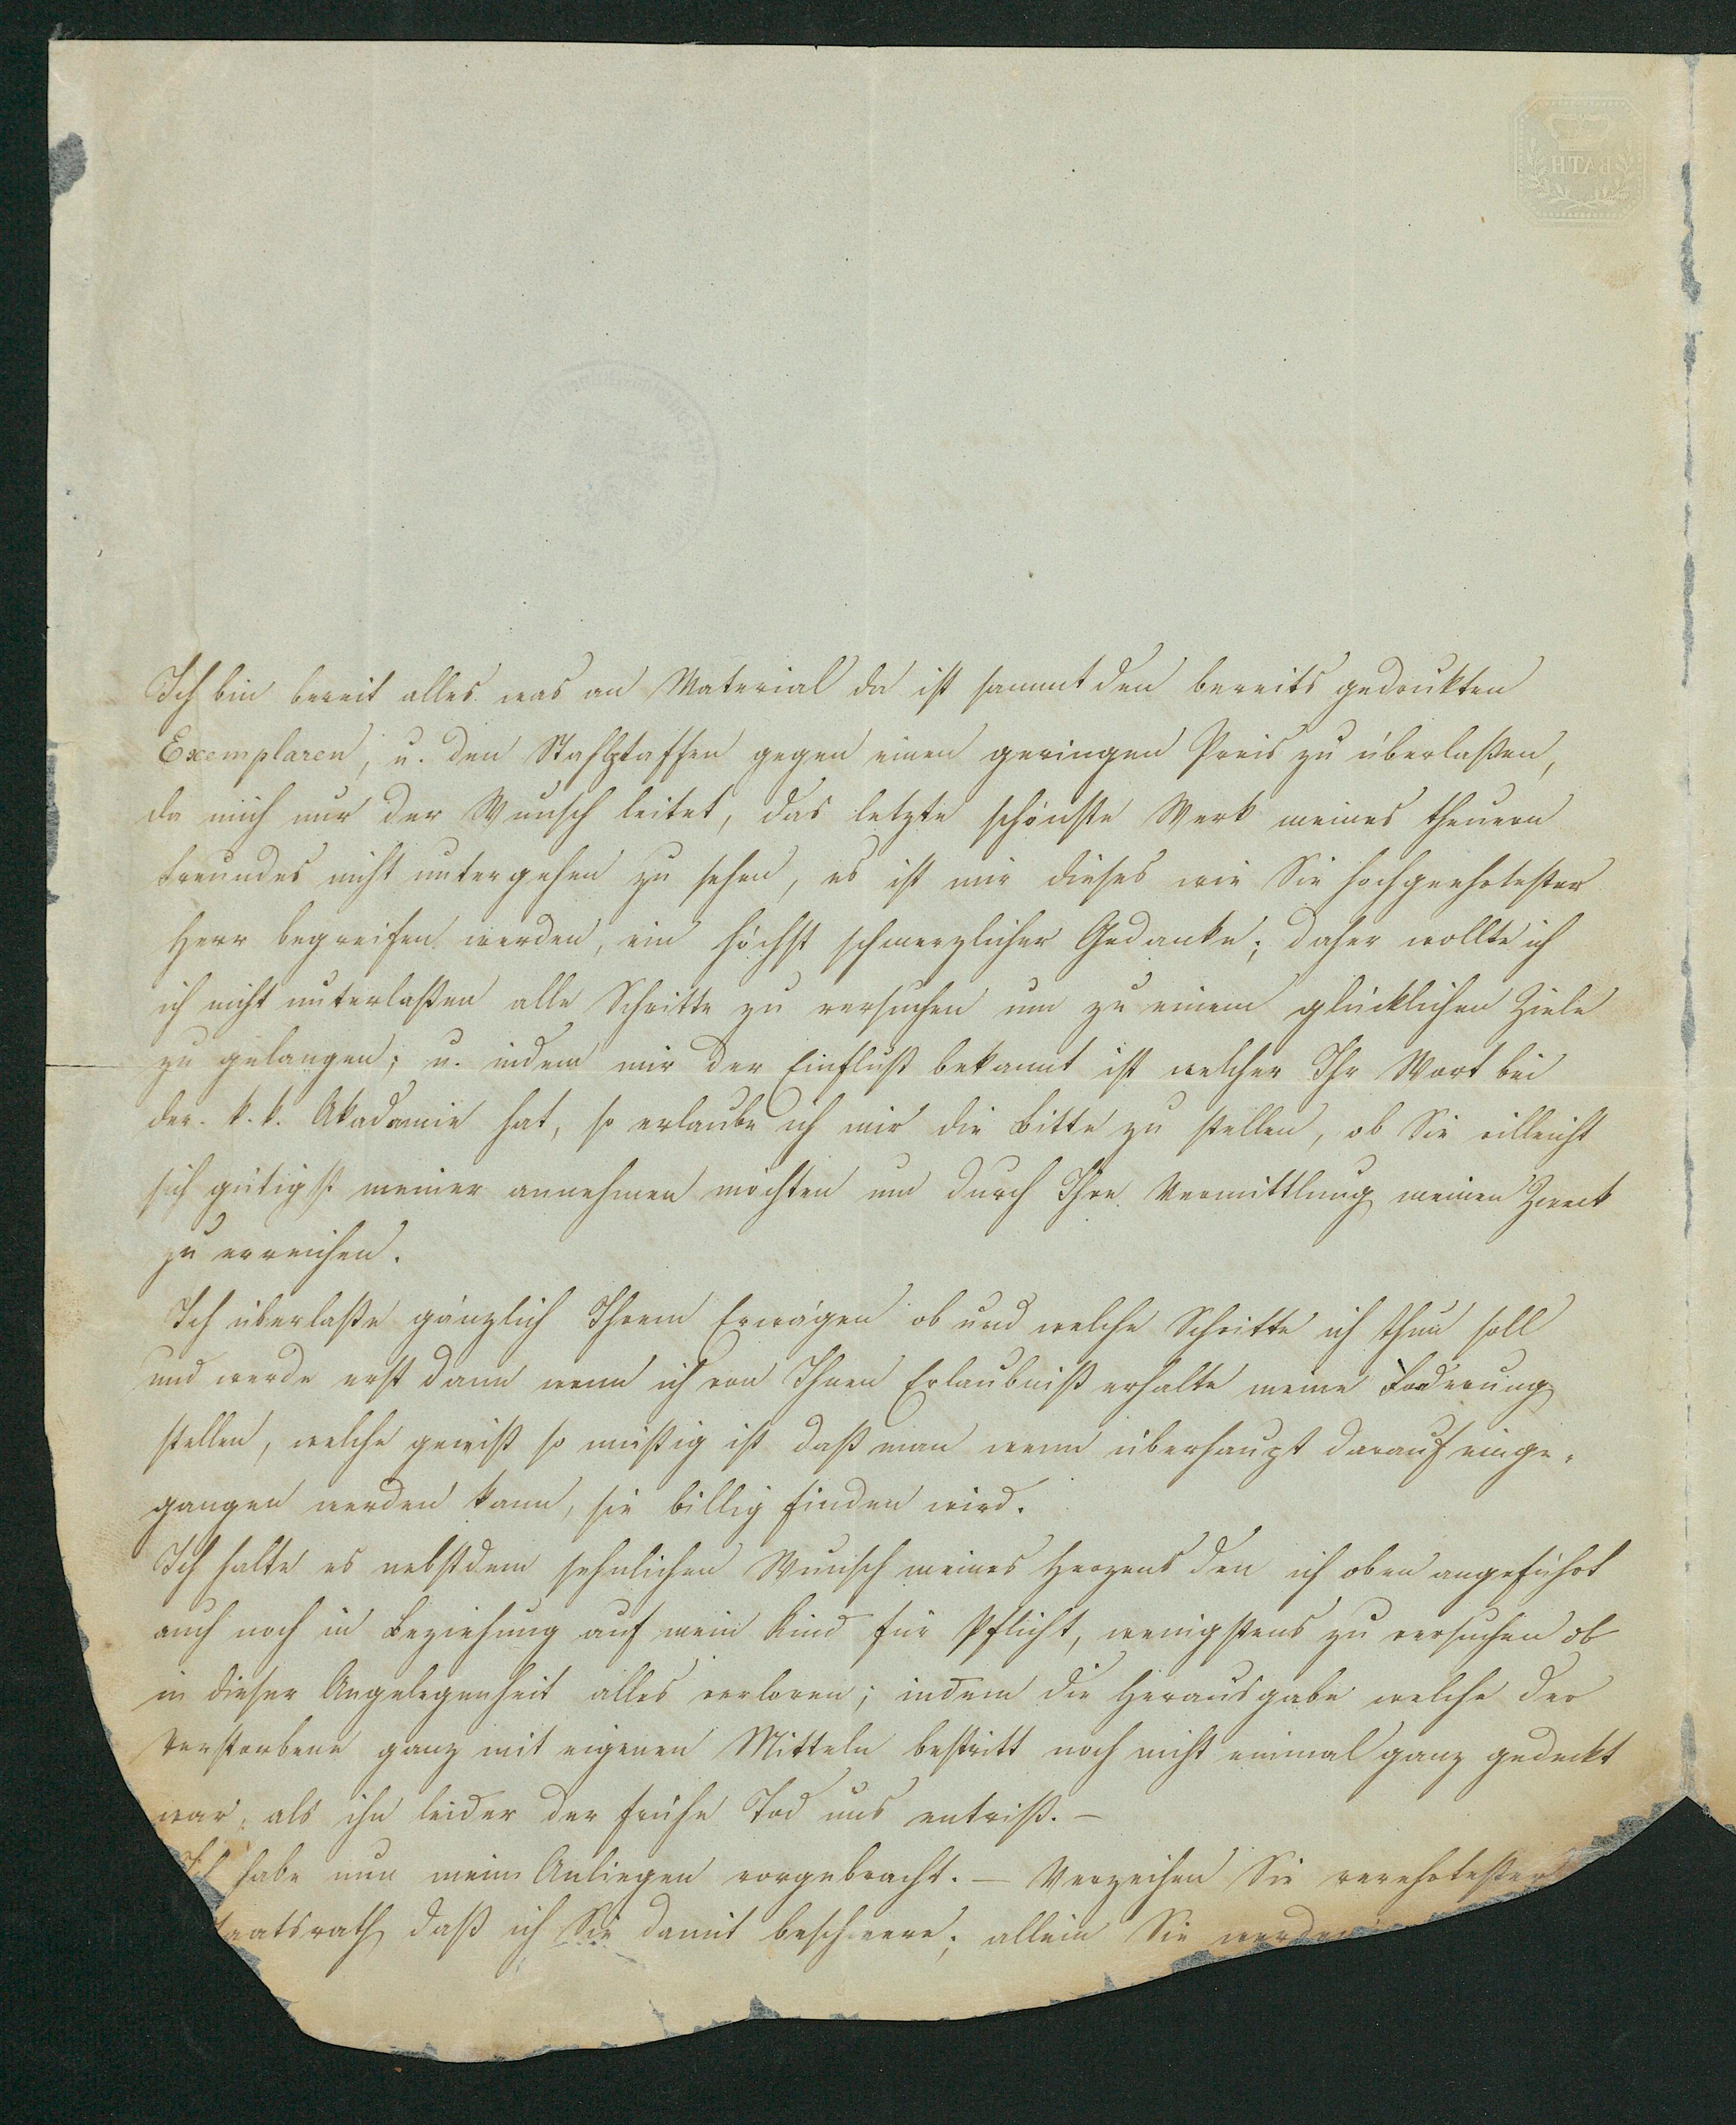 BATH
Ich bin bereit alles was an Material da ist sammt den bereits gedrukten
Exemplaren, u. den gegen einen geringen Preis zu überlaßen,
da mich nur der Wunsch leitet, das letzte schönste Werk meines theuern
Freundes nicht untergehen zu sehen, es ist mir dieses wie Sie hochgeehrtester
Herr begreifen werden, ein höchst schmerzlicher Gedanke; daher wollte ich
ich nicht unterlaßen alle Schritte zu versuchen um zu einem glücklichen Ziele
zu gelangen; u. indem mir der Einfluß bekannt ist welcher Ihr Wort bei
der k. k. Akademie hat, so erlaube ich mir die Bitte zu stellen, ob Sie villeicht
sich gütigst meiner annehmen möchten um durch Ihre Vermittlung meinen Zweck
zu erreichen.
Ich überlaße gänzlich Ihrem Erwägen ob und welche Schritte ich thun soll
und werde erst dann wenn ich von Ihnen Erlaubniß erhalte meine Foderung
stellen, welche gewiß so mäßig ist daß man wenn überhaupt darauf einge-
gangen werden kann, sie billig finden wird.
Ich halte es nebst dem sehnlichen Wunsch meines Herzens den ich oben angeführt
auch noch in Beziehung auf mein Kind für Pflicht, wenigstens zu versuchen ob
in dieser Angelegenheit alles verloren; indem die Herausgabe welche der
Verstorbene ganz mit eigenen Mitteln bestritt noch nicht einmal ganz gedeckt
war, als ihn leider der frühe Tod uns entriß. —
Ich habe nun mein Anliegen vorgebracht. — Verzeihen Sie verehrtester
taatsrath daß ich Sie damit beschwere; allein Sie werden